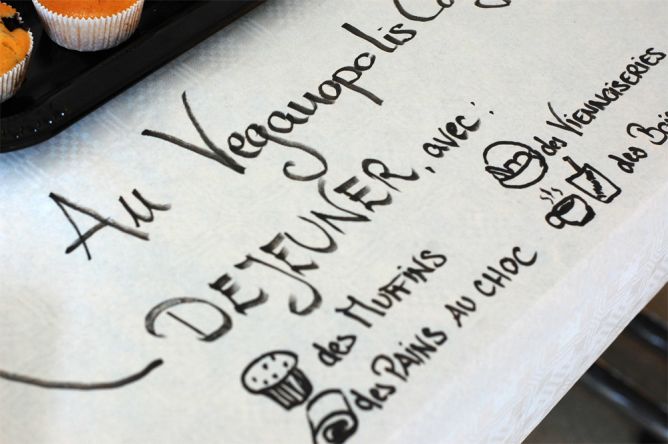 Au Veganopolis
DEJEUNER, avec:
des MUFFINS
des PAINS AU CHOC
des VIENNOISERIES
des